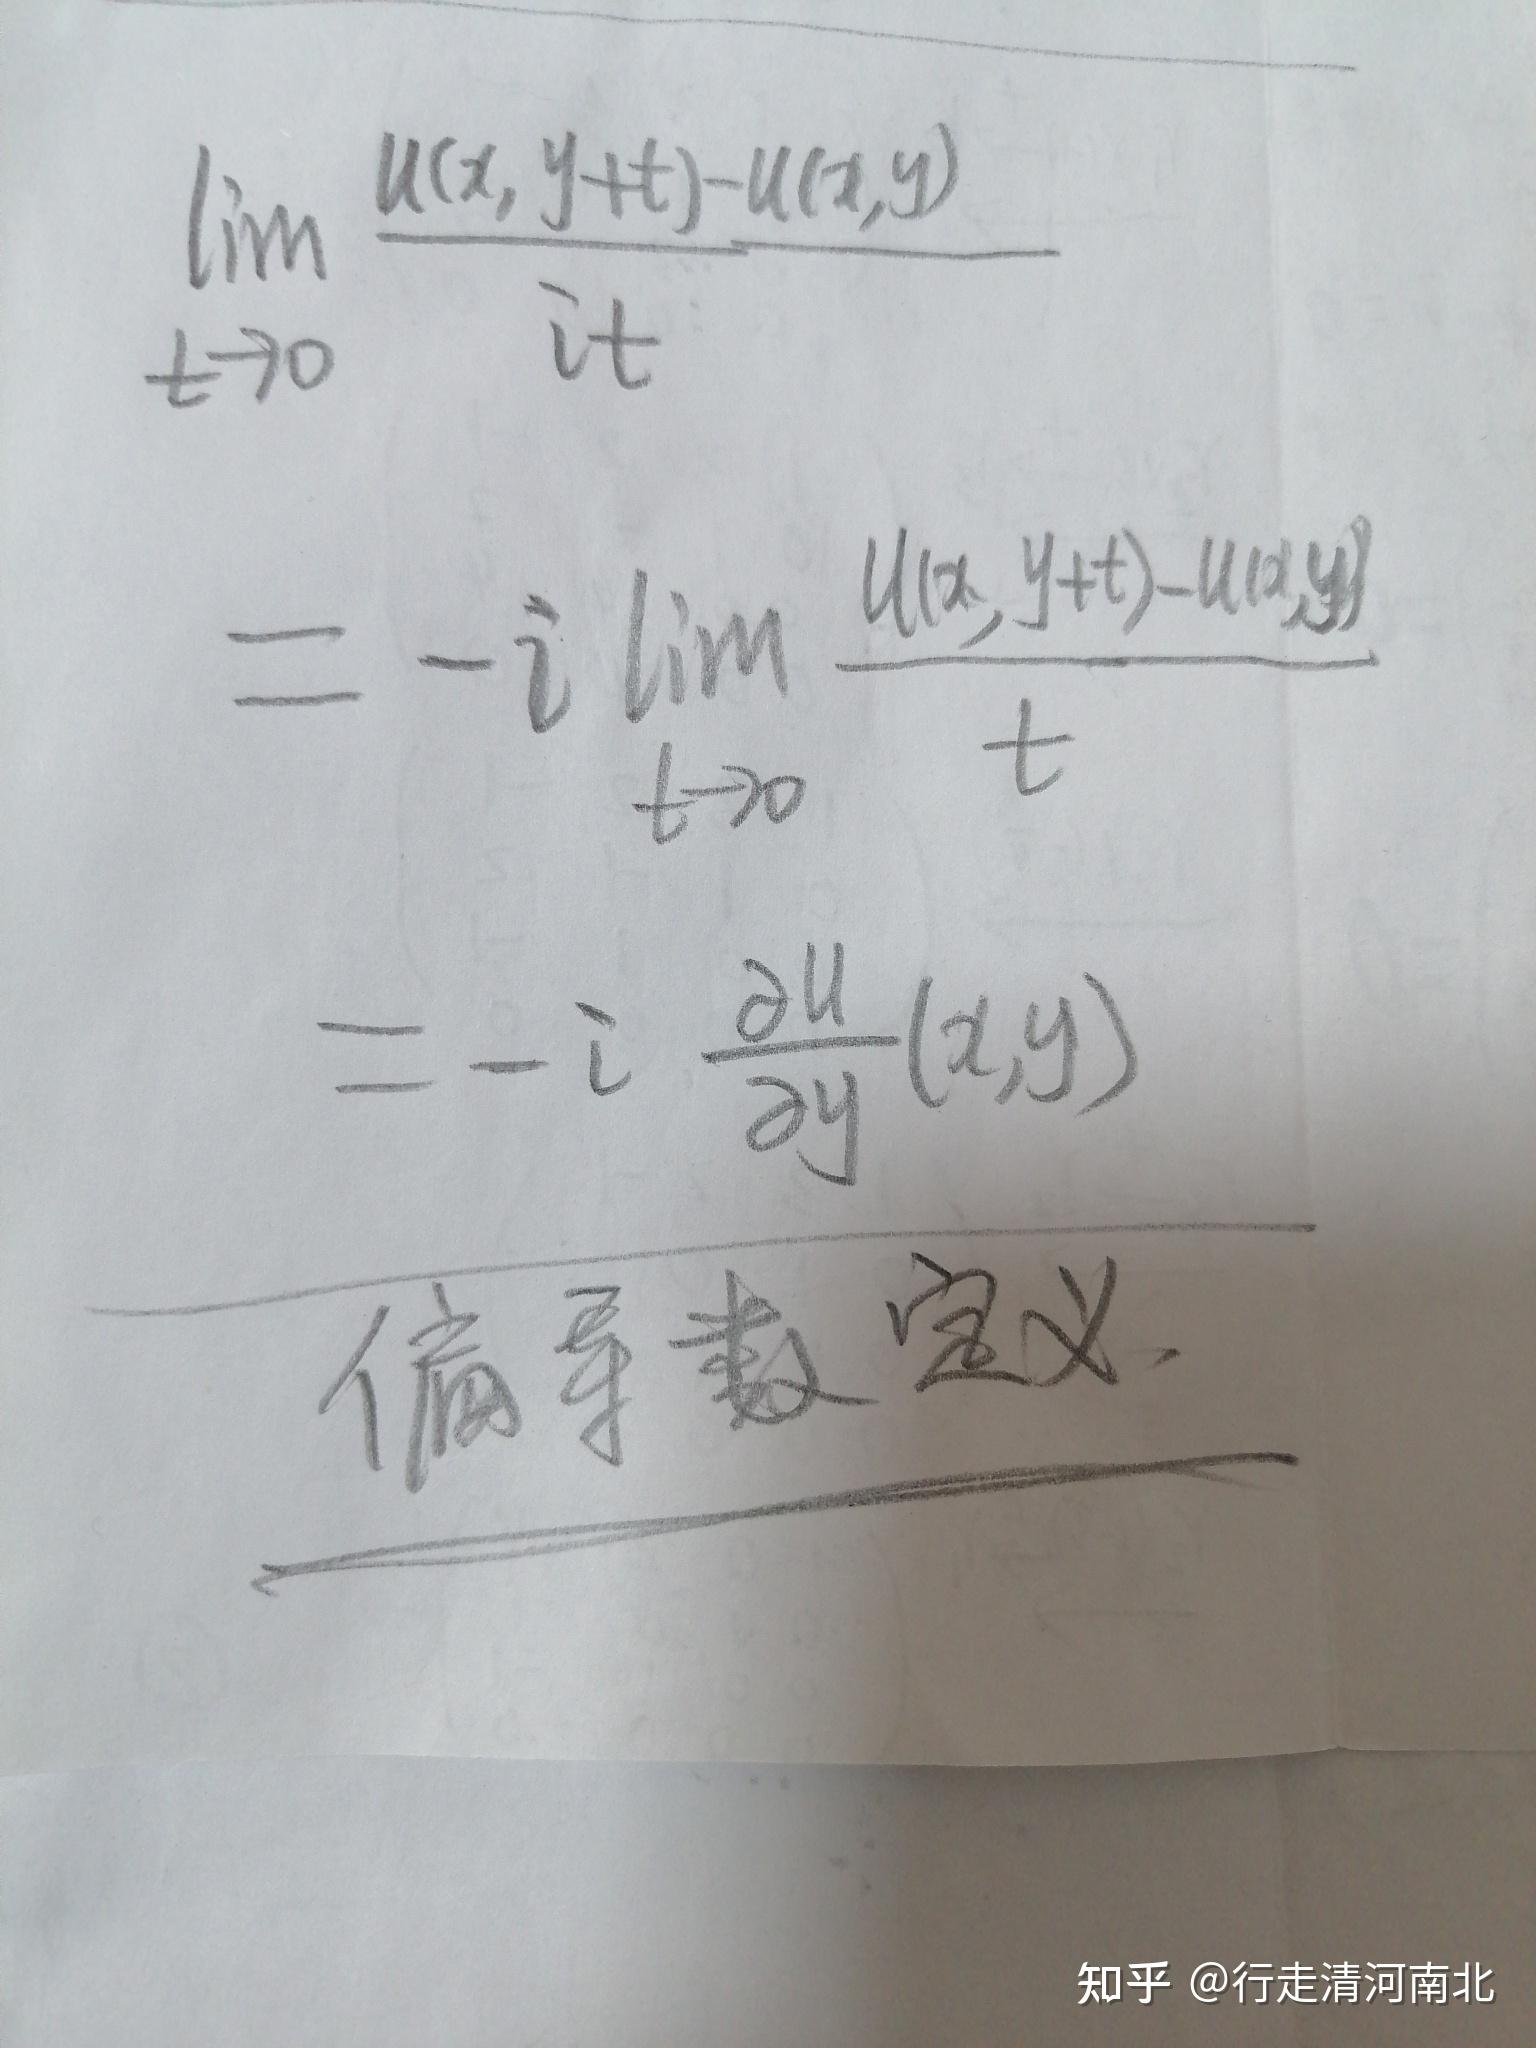 lim_{t→0} \frac{u(x, y+t)-u(x,y)}{it}
= -i lim_{t→0} \frac{u(x, y+t)-u(x,y)}{t}
= -i \frac{∂u}{∂y}(x,y)
偏导数定义.
知乎 @行走清河南北